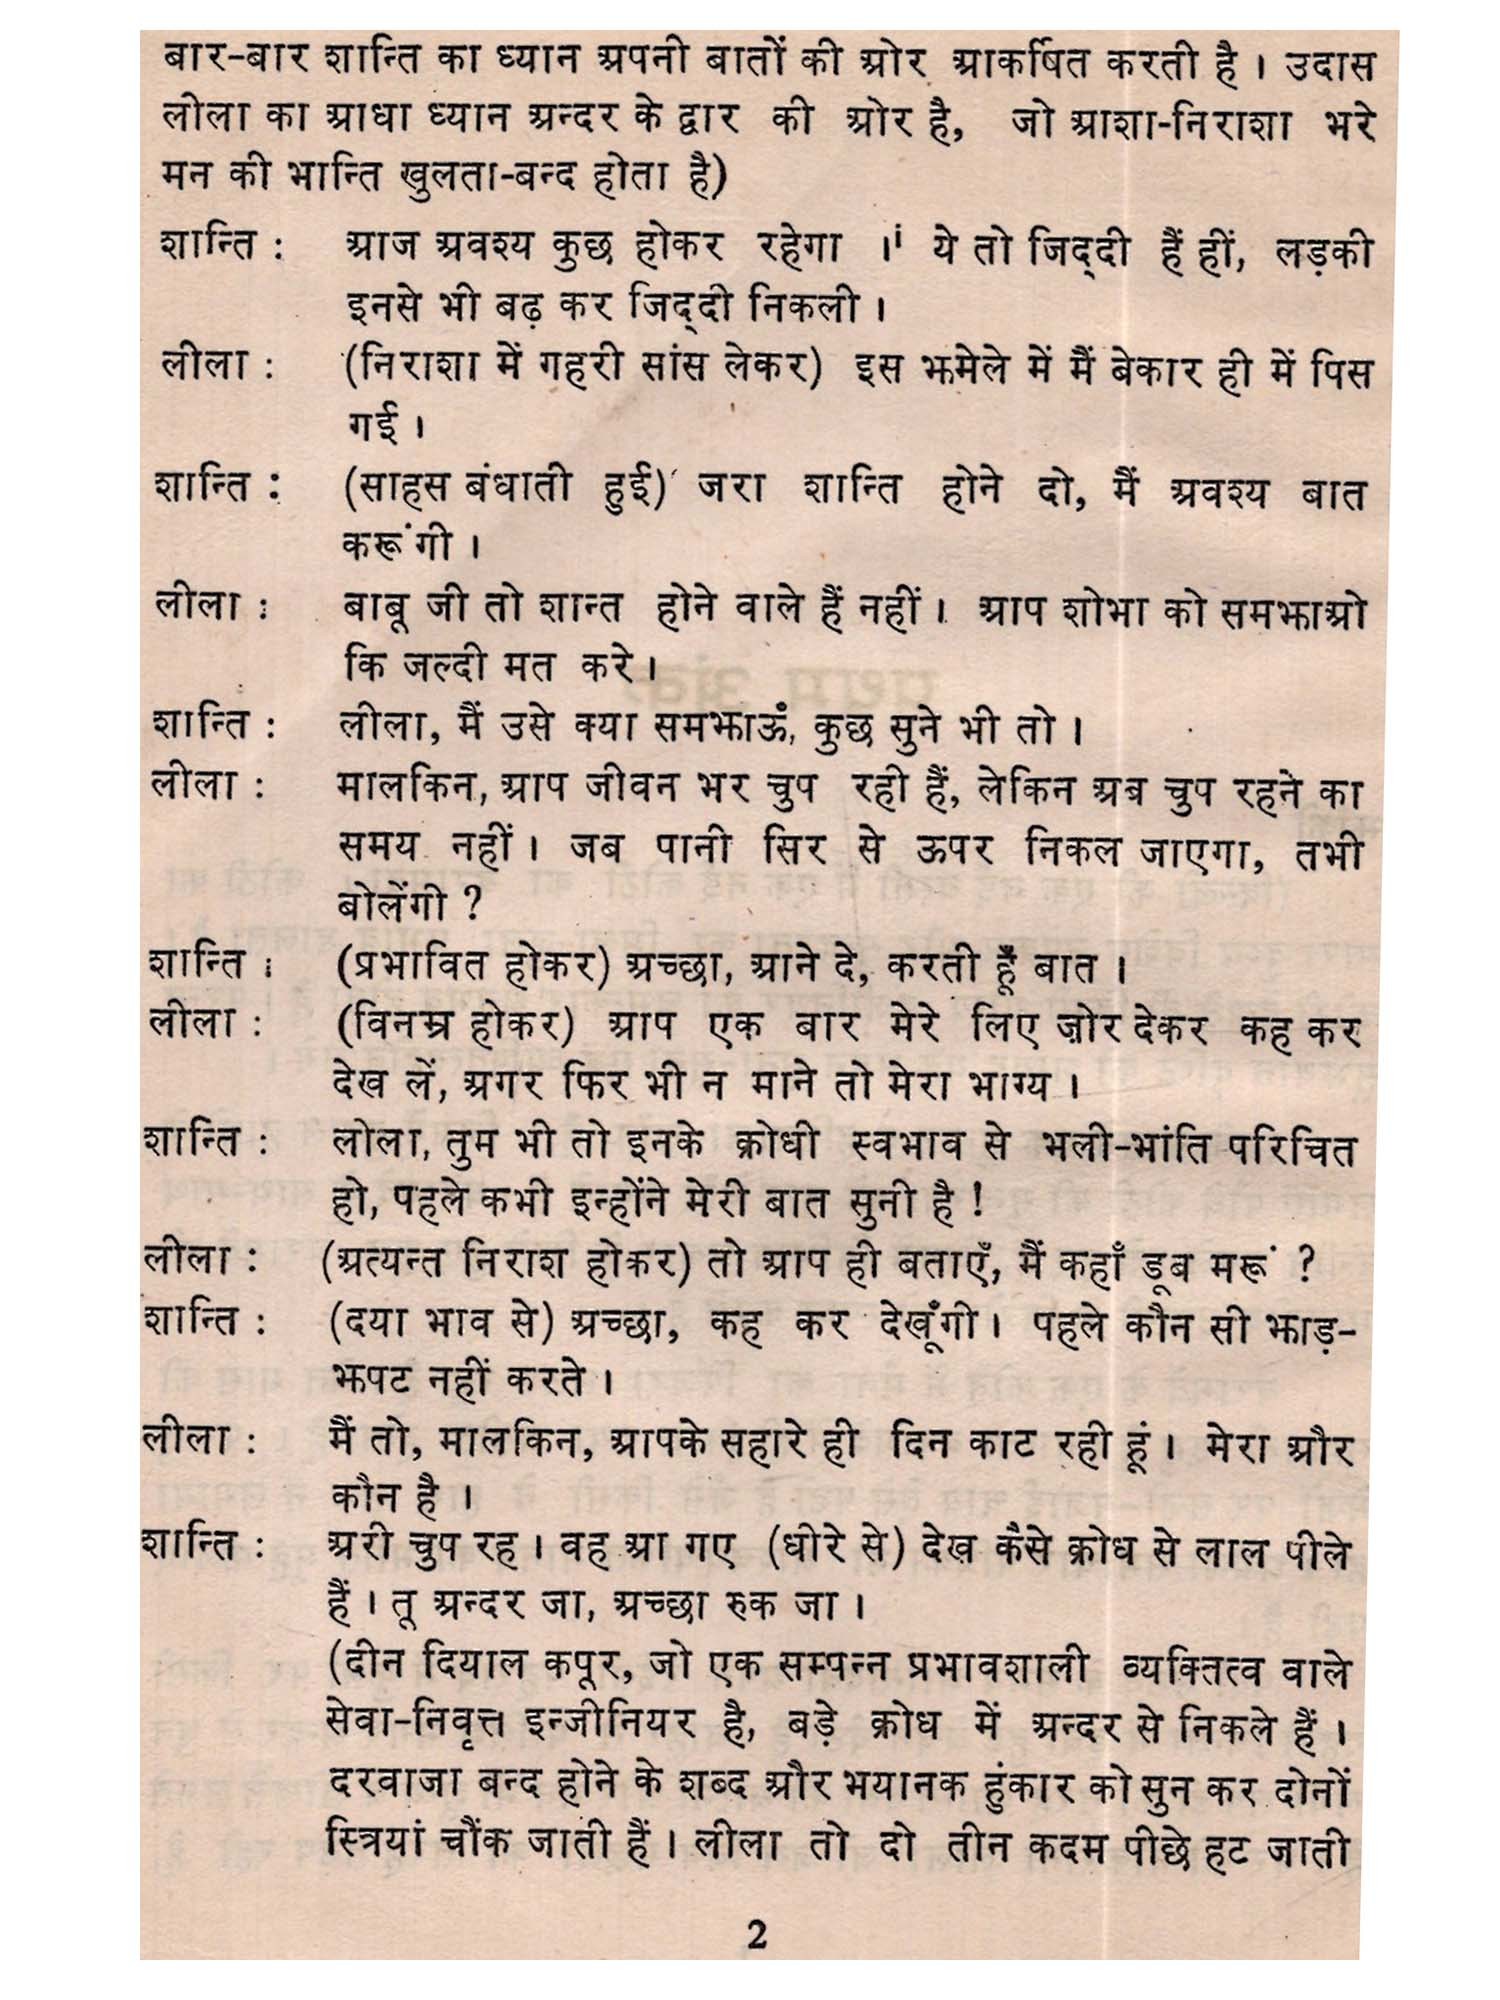 बार-बार शान्ति का ध्यान अपनी बातों की ओर आकर्षित करती है । उदास
लीला का आधा ध्यान अन्दर के द्वार की ओर है, जो आशा-निराशा भरे
मन की भान्ति खुलता-बन्द होता है)
शान्ति : आज अवश्य कुछ होकर रहेगा । ये तो जिद्दी हैं हीं, लड़की
इनसे भी बढ़ कर जिद्दी निकली ।
लीला : (निराशा में गहरी सांस लेकर) इस झमेले में मैं बेकार ही में पिस
गई ।
शान्ति : (साहस बंधाती हुई) जरा शान्ति होने दो, मैं अवश्य बात
करूंगी ।
लीला : बाबू जी तो शान्त होने वाले हैं नहीं । आप शोभा को समझाओ
कि जल्दी मत करे ।
शान्ति : लीला, मैं उसे क्या समझाऊँ, कुछ सुने भी तो ।
लीला : मालकिन, आप जीवन भर चुप रही हैं, लेकिन अब चुप रहने का
समय नहीं । जब पानी सिर से ऊपर निकल जाएगा, तभी
बोलेंगी ?
शान्ति : (प्रभावित होकर) अच्छा, आने दे, करती हूँ बात ।
लीला : (विनम्र होकर) आप एक बार मेरे लिए ज़ोर देकर कह कर
देख लें, अगर फिर भी न माने तो मेरा भाग्य ।
शान्ति : लोला, तुम भी तो इनके क्रोधी स्वभाव से भली-भांति परिचित
हो, पहले कभी इन्होंने मेरी बात सुनी है !
लीला : (अत्यन्त निराश होकर) तो आप ही बताएँ, मैं कहाँ डूब मरूं ?
शान्ति : (दया भाव से) अच्छा, कह कर देखूँगी । पहले कौन सी झाड़-
झपट नहीं करते ।
लीला : मैं तो, मालकिन, आपके सहारे ही दिन काट रही हूं । मेरा और
कौन है ।
शान्ति : अरी चुप रह । वह आ गए (धीरे से) देख कैसे क्रोध से लाल पीले
हैं । तू अन्दर जा, अच्छा रुक जा ।
(दीन दियाल कपूर, जो एक सम्पन्न प्रभावशाली व्यक्तित्व वाले
सेवा-निवृत्त इन्जीनियर है, बड़े क्रोध में अन्दर से निकले हैं ।
दरवाजा बन्द होने के शब्द और भयानक हुंकार को सुन कर दोनों
स्त्रियां चौंक जाती हैं । लीला तो दो तीन कदम पीछे हट जाती
2